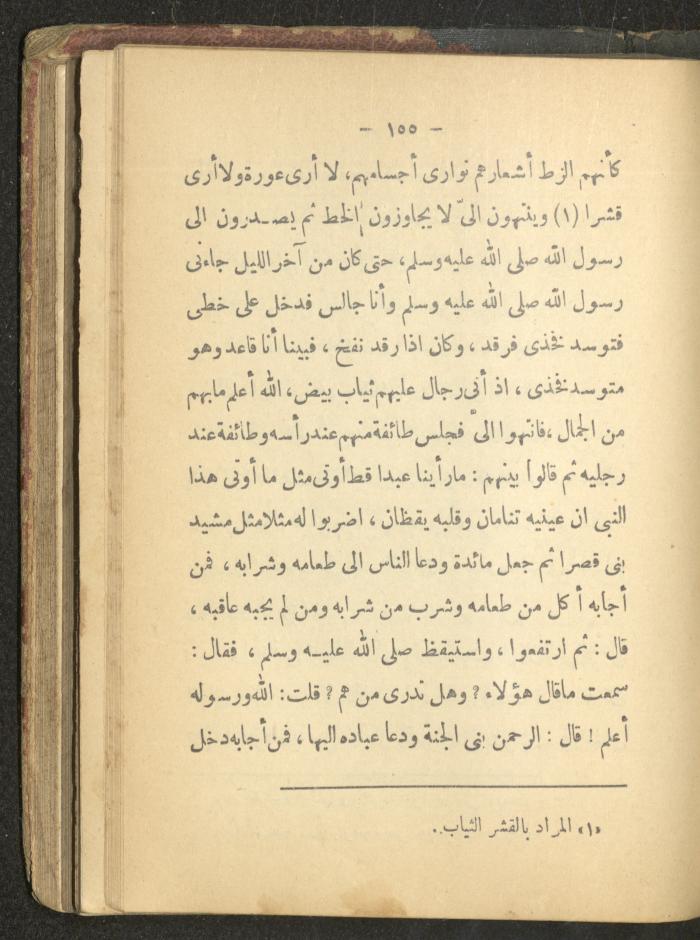 — ١٥٥ —
كأنهم الزط أشعارهم نوارى أجسامهم، لا أرى عورة ولا أرى
قشرا (١) وينتهون الىّ لا يجاوزون الخط ثم يصـدرون الى
رسول الله صلى الله عليه وسلم، حتى كان من آخر الليل جاءنى
رسول الله صلى الله عليه وسلم وأنا جالس فدخل على خطى
فتوسد فخذى فرقد ، وكان اذا رقد نفخ ، فبينا أنا قاعد وهو
متوسد فخذى ، اذ أنى رجال عليهم ثياب بيض، الله أعلم مابهم
من الجمال ،فانتهوا الىّ فجلس طائفة منهم عند رأسه وطائفة عند
رجليه ثم قالوا بينهم : مارأينا عبدا قط أوتى مثل ما أوتى هذا
النبى ان عينيه تنامان وقلبه يقظان ، اضربوا له مثلا مثل مشيد
بنى قصرا ثم جعل مائدة ودعا الناس الى طعامه وشرابه ، فمن
أجابه أكل من طعامه وشرب من شرابه ومن لم يجبه عاقبه ،
قال : ثم ارتفعوا ، واستيقظ صلى الله عليـه وسلم ، فقال :
سمعت ماقال هؤلاء ؟ وهل تدرى من هم ؟ قلت: الله ورسوله
أعلم ! قال : الرحمن بنى الجنة ودعا عباده اليها ، فمن أجابه دخل
«١» المراد بالقشر الثياب.